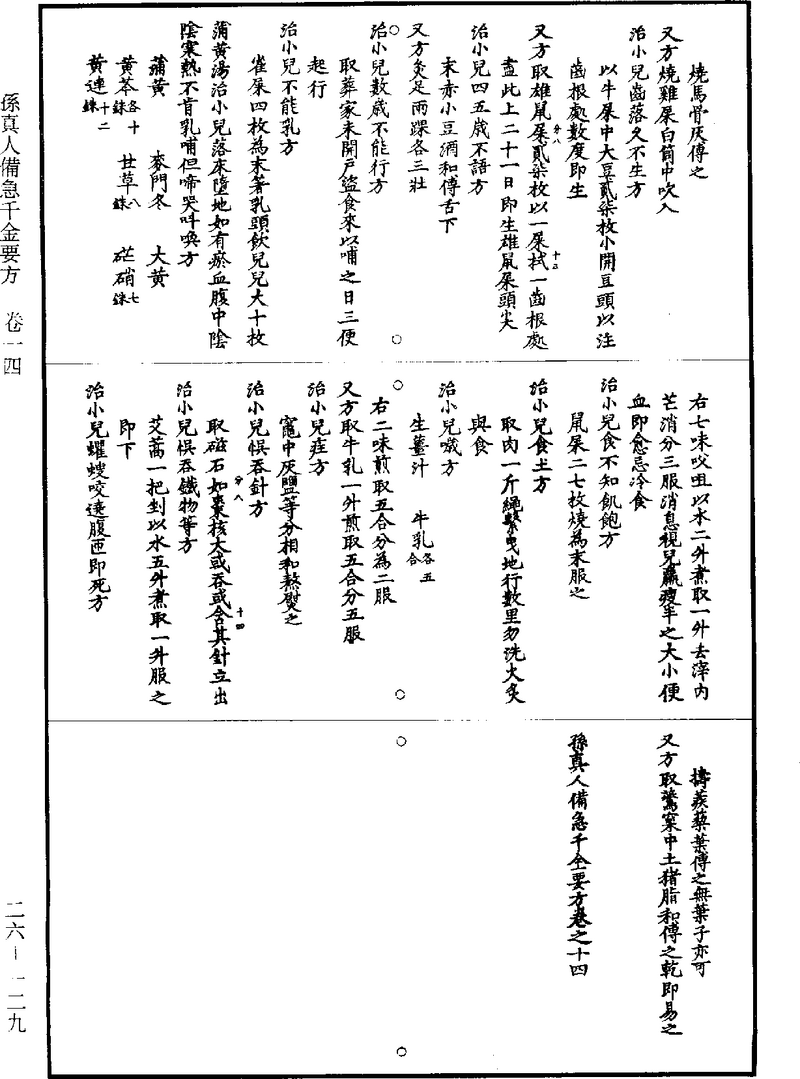 燒馬骨灰傅之
又方燒雞屎白筒中吹入
治小兒齒落久不生方
以牛屎中大豆貳柒枚小開豆頭以注
齒根處數度即生
又方取雄鼠屎貳柒枚以一屎拭一齒根處
盡此上二十一日即生雄鼠屎頭尖
治小兒四五歲不語方
末赤小豆酒和傅舌下
又方灸足兩踝各三壯
治小兒數歲不能行方
取葬家未開戶盜食來以哺之日三便
起行
治小兒不能乳方
雀屎四枚為末著乳頭飲兒兒大十枚
蒲黃湯治小兒落床墮地如有瘀血腹中陰
陰寒熱不肯乳哺但啼哭叫喚方
蒲黃 麥門冬 大黃
黃芩各十銖 甘草八銖 芒硝七銖
黃連十二銖
右七味㕮咀以水二升煮取一升去滓內
芒消分三服消息視兒羸瘦半之大小便
血即愈忌冷食
治小兒食不知飢飽方
鼠屎二七枚燒為末服之
治小兒食土方
取肉一斤繩繫曳地行數里勿洗火炙
與食
治小兒噦方
生薑汁 牛乳各五合
右二味煎取五合分為二服
又方取牛乳一升煎取五合分五服
治小兒疰方
竈中灰鹽等分相和熬熨之
治小兒悞吞針方
取磁石如棗核大或吞或含其針立出
治小兒悞吞鐵物等方
艾蒿一把剉以水五升煮取一升服之
即下
治小兒蠼螋咬遶腹匝即死方
擣蒺藜葉傅之無葉子亦可
又方取鷰窠中土猪脂和傅之乾即易之
孫真人備急千金要方卷之十四
孫真人備急千金要方 卷一四
二六－一二九